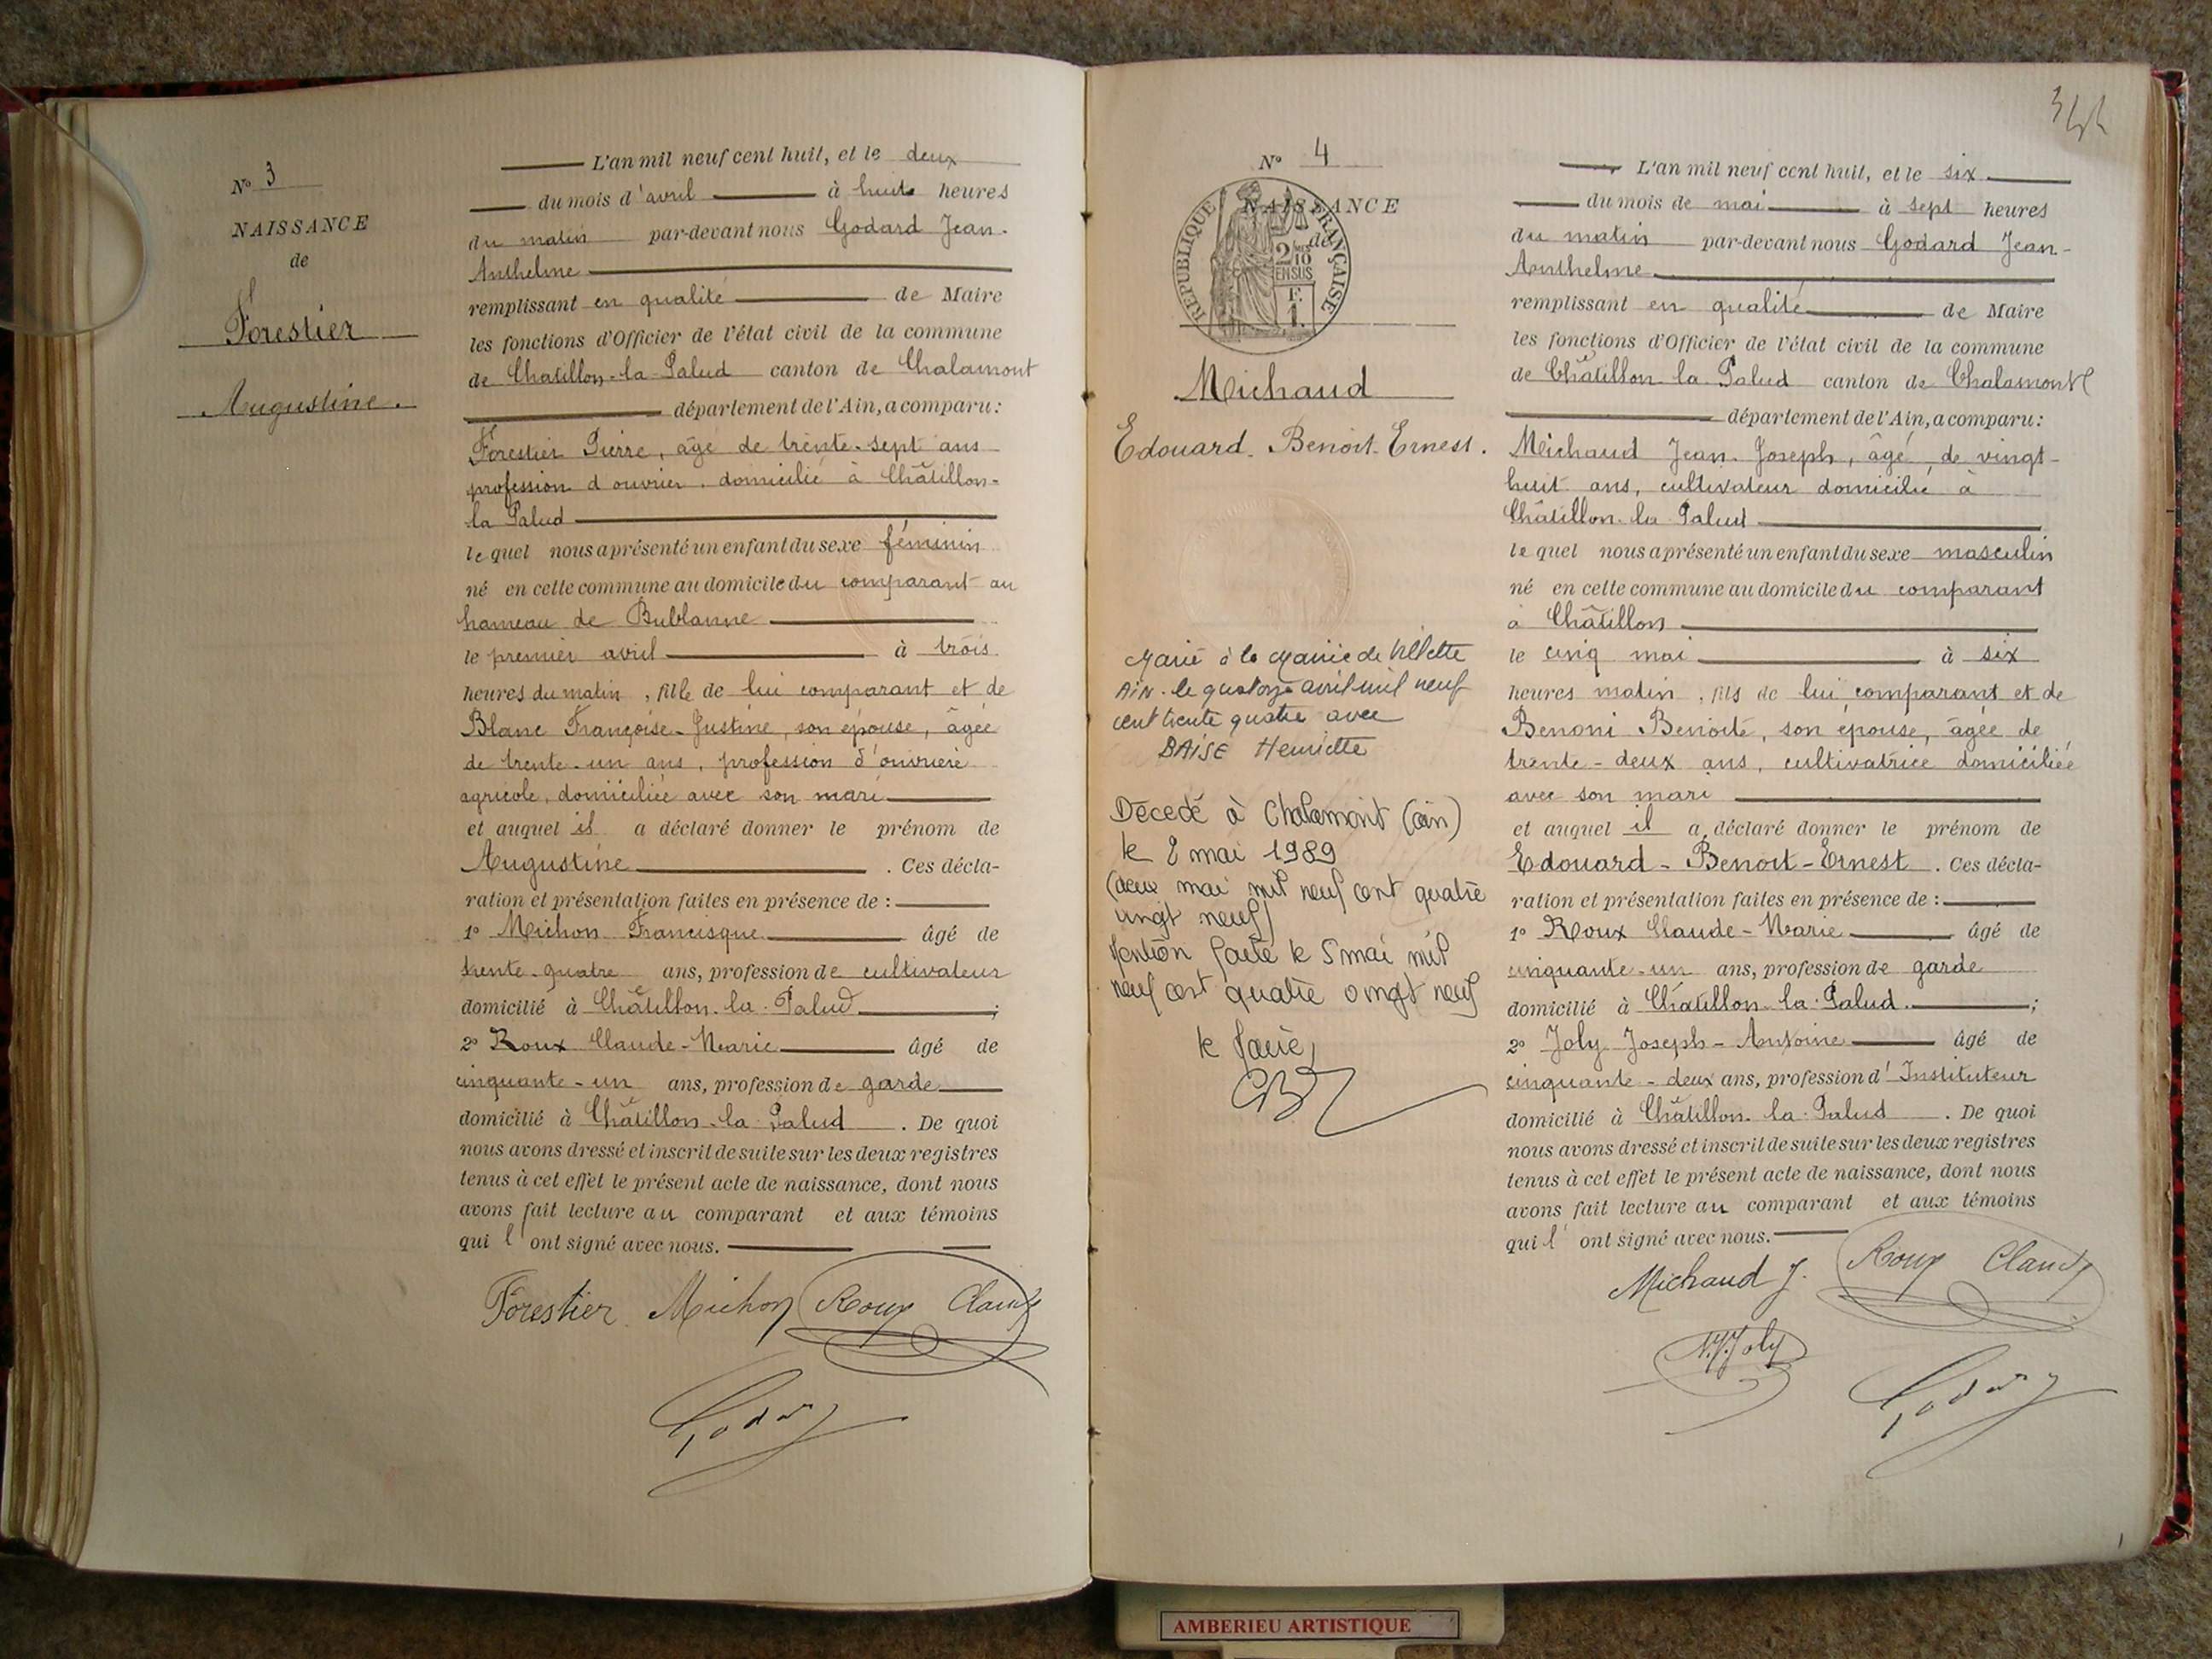 N° 3
NAISSANCE
de
Forestier
Augustine.
L'an mil neuf cent huit, et le deux
du mois d'avril à huit heures
du matin par-devant nous Godard Jean-
Anthelme
remplissant en qualité de Maire
les fonctions d'Officier de l'état civil de la commune
de Châtillon-la-Palud canton de Chalamont
département de l'Ain, a comparu:
Forestier Pierre, âgé de trente-sept ans
profession d'ouvrier, domicilié à Châtillon-
la Palud
le quel nous a présenté un enfant du sexe féminin
né en cette commune au domicile du comparant au
hameau de Bublanne
le premier avril à trois
heures du matin, fille de lui comparant et de
Blanc Françoise-Justine, son épouse, âgée
de trente-un ans, profession d'ouvrière
agricole, domiciliée avec son mari
et auquel il a déclaré donner le prénom de
Augustine. Ces décla-
ration et présentation faites en présence de :
1° Michon Francisque âgé de
trente-quatre ans, profession de cultivateur
domicilié à Châtillon-la-Palud ;
2° Roux Claude-Marie âgé de
cinquante-un ans, profession de garde
domicilié à Châtillon-la-Palud. De quoi
nous avons dressé et inscrit de suite sur les deux registres
tenus à cet effet le présent acte de naissance, dont nous
avons fait lecture au comparant et aux témoins
qui l'ont signé avec nous.
Forestier Michon Roux Claude
Godard
344
N° 4
NAISSANCE
de
REPUBLIQUE FRANÇAISE
2/10
EN SUS
F.
1.
Michaud
Edouard-Benoit-Ernest.
Marié à la Mairie de Villette
AIN. le quatorze avril mil neuf
cent trente quatre avec
BAISE Henriette
Décédé à Chalamont (ain)
le 2 mai 1989
(deux mai mil neuf cent quatre
vingt neuf)
Mention faite le 5 mai mil
neuf cent quatre vingt neuf
le Maire,
L'an mil neuf cent huit, et le six
du mois de mai à sept heures
du matin par-devant nous Godard Jean-
Anthelme
remplissant en qualité de Maire
les fonctions d'Officier de l'état civil de la commune
de Châtillon-la-Palud canton de Chalamont
département de l'Ain, a comparu:
Michaud Jean-Joseph, âgé de vingt-
huit ans, cultivateur domicilié à
Châtillon-la-Palud
le quel nous a présenté un enfant du sexe masculin
né en cette commune au domicile du comparant
à Châtillon
le cinq mai à six
heures matin, fils de lui comparant et de
Benoni Benoite, son épouse, âgée de
trente-deux ans, cultivatrice domiciliée
avec son mari
et auquel il a déclaré donner le prénom de
Edouard-Benoit-Ernest. Ces décla-
ration et présentation faites en présence de :
1° Roux Claude-Marie âgé de
cinquante-un ans, profession de garde
domicilié à Châtillon-la-Palud. ;
2° Joly Joseph-Antoine âgé de
cinquante-deux ans, profession d'Instituteur
domicilié à Châtillon-la-Palud. De quoi
nous avons dressé et inscrit de suite sur les deux registres
tenus à cet effet le présent acte de naissance, dont nous
avons fait lecture au comparant et aux témoins
qui l'ont signé avec nous.
Michaud J. Roux Claude
Joly
Godard
AMBERIEU ARTISTIQUE